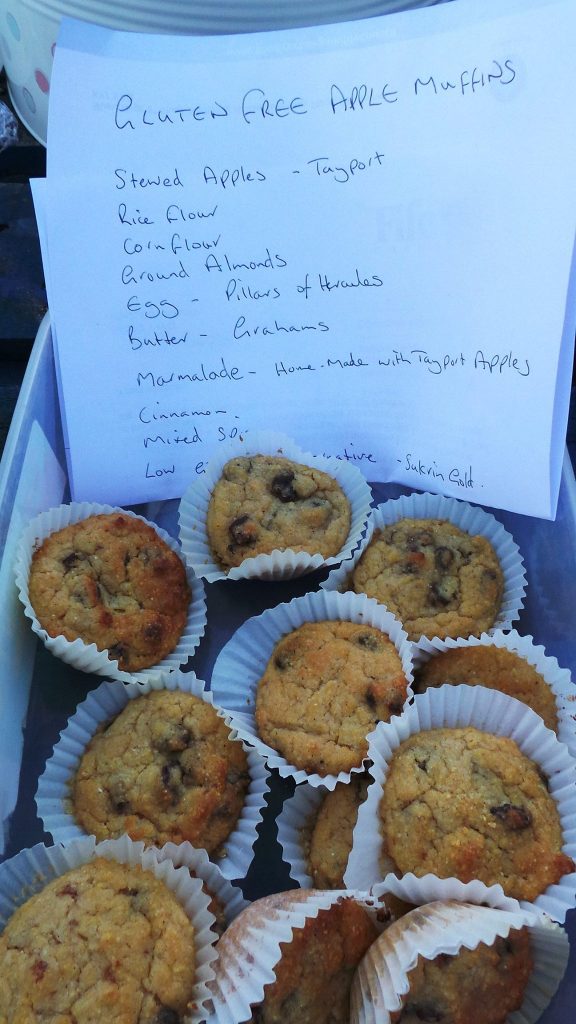 GLUTEN FREE APPLE MUFFINS
Stewed Apples - Tayport
Rice flour
Corn flour
Ground Almonds
Egg - Pillars of Hercules
Butter - Grahams
Marmalade - Home-Made with Tayport Apples
Cinnamon.
Mixed
Low - Sukrin Gold.